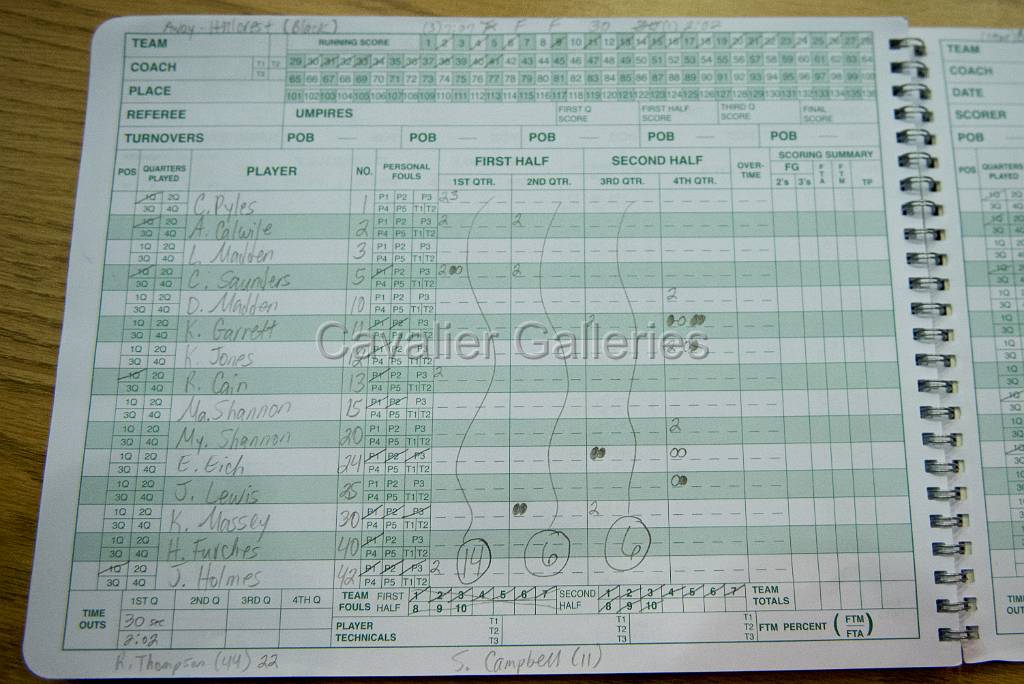 Away - Hillcrest (Black) (3) 7:07 F F 30 (1) 2:02
TEAM RUNNING SCORE 1 2 3 4 5 6 7 8 9 10 11 12 13 14 15 16 17 18 19 20 21 22 23 24 25 26 27 28
COACH T1 T2 T3 29 30 31 32 33 34 35 36 37 38 39 40 41 42 43 44 45 46 47 48 49 50 51 52 53 54 55 56 57 58 59 60 61 62 63 64
65 66 67 68 69 70 71 72 73 74 75 76 77 78 79 80 81 82 83 84 85 86 87 88 89 90 91 92 93 94 95 96 97 98 99 100
PLACE 101 102 103 104 105 106 107 108 109 110 111 112 113 114 115 116 117 118 119 120 121 122 123 124 125 126 127 128 129 130 131 132 133 134 135 136
REFEREE UMPIRES FIRST Q SCORE FIRST HALF SCORE THIRD Q SCORE FINAL SCORE
TURNOVERS POB POB POB POB POB
POS QUARTERS PLAYED PLAYER NO. PERSONAL FOULS FIRST HALF SECOND HALF OVER-TIME SCORING SUMMARY
1ST QTR. 2ND QTR. 3RD QTR. 4TH QTR. FG 2's 3's FTA FTM TP
1Q 2Q 3Q 4Q C. Pyles 1 P1 P2 P3 P4 P5 T1 T2 23
1Q 2Q 3Q 4Q A. Calwile 2 P1 P2 P3 P4 P5 T1 T2 2 2
1Q 2Q 3Q 4Q L. Madden 3 P1 P2 P3 P4 P5 T1 T2
1Q 2Q 3Q 4Q C. Saunders 5 P1 P2 P3 P4 P5 T1 T2 2 2
1Q 2Q 3Q 4Q D. Madden 10 P1 P2 P3 P4 P5 T1 T2 2
1Q 2Q 3Q 4Q K. Garrett 11 P1 P2 P3 P4 P5 T1 T2 2
Cavalier Galleries
1Q 2Q 3Q 4Q K. Jones 12 P1 P2 P3 P4 P5 T1 T2
1Q 2Q 3Q 4Q R. Cain 13 P1 P2 P3 P4 P5 T1 T2 2
1Q 2Q 3Q 4Q Ma. Shannon 15 P1 P2 P3 P4 P5 T1 T2
1Q 2Q 3Q 4Q My. Shannon 20 P1 P2 P3 P4 P5 T1 T2 2
1Q 2Q 3Q 4Q E. Eich 24 P1 P2 P3 P4 P5 T1 T2
1Q 2Q 3Q 4Q J. Lewis 25 P1 P2 P3 P4 P5 T1 T2
1Q 2Q 3Q 4Q K. Massey 30 P1 P2 P3 P4 P5 T1 T2 2
1Q 2Q 3Q 4Q H. Furches 40 P1 P2 P3 P4 P5 T1 T2 14 6 6
1Q 2Q 3Q 4Q J. Holmes 42 P1 P2 P3 P4 P5 T1 T2 2
TIME OUTS 1ST Q 2ND Q 3RD Q 4TH Q TEAM FOULS FIRST HALF 1 2 3 4 5 6 7 8 9 10 SECOND HALF 1 2 3 4 5 6 7 8 9 10 TEAM TOTALS
30 sec PLAYER TECHNICALS T1 T2 T3 T1 T2 T3 T1 T2 T3 FTM PERCENT (FTM/FTA)
2:02
R. Thompson (44) 22 S. Campbell (11)
TEAM
COACH
DATE
SCORER
POB
POS QUARTERS PLAYED